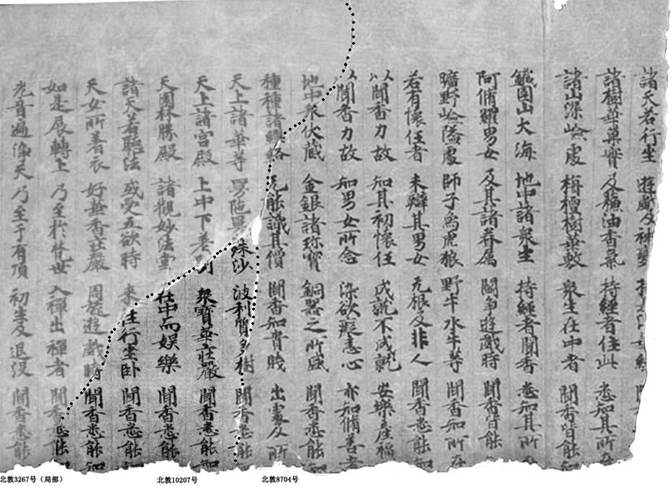 諸天若行坐 遊戲及神變
諸樹華菓實 及穌油香氣 持經者住此 悉知其所在
諸山深嶮處 栴檀樹華敷 衆生在中者 聞香皆能知
鐵圍山大海 地中諸衆生 持經者聞香 悉知其所在
阿修羅男女 及其諸眷屬 鬪諍遊戲時 聞香皆能知
曠野嶮隘處 師子象虎狼 野牛水牛等 聞香知所在
若有懷任者 未辯其男女 无根及非人 聞香悉能知
以聞香力故 知其初懷任 成就不成就 安樂產福
以聞香力故 知男女所念 染欲癡恚心 亦知脩善者
地中衆伏藏 金銀諸珎寶 銅器之所盛 聞香悉能知
種種諸瓔珞 无能識其價 聞香知貴賤 出處及所
天上諸華等 曼陀曼殊沙 波利質多樹 聞香悉能知
天上諸宮殿 上中下差別 衆寶華莊嚴 聞香悉能知
天園林勝殿 諸觀妙法堂 在中而娛樂 聞香悉能知
諸天若聽法 或受五欲時 來往行坐臥 聞香悉能知
天女所著衣 好華香莊嚴 周旋遊戲時 聞香悉能知
如是展轉上 乃至於梵世 入禪出禪者 聞香悉能知
光音遍淨天 乃至于有頂 初生及退沒 聞香悉能知
北敦3267号（局部）
北敦10207号
北敦8704号